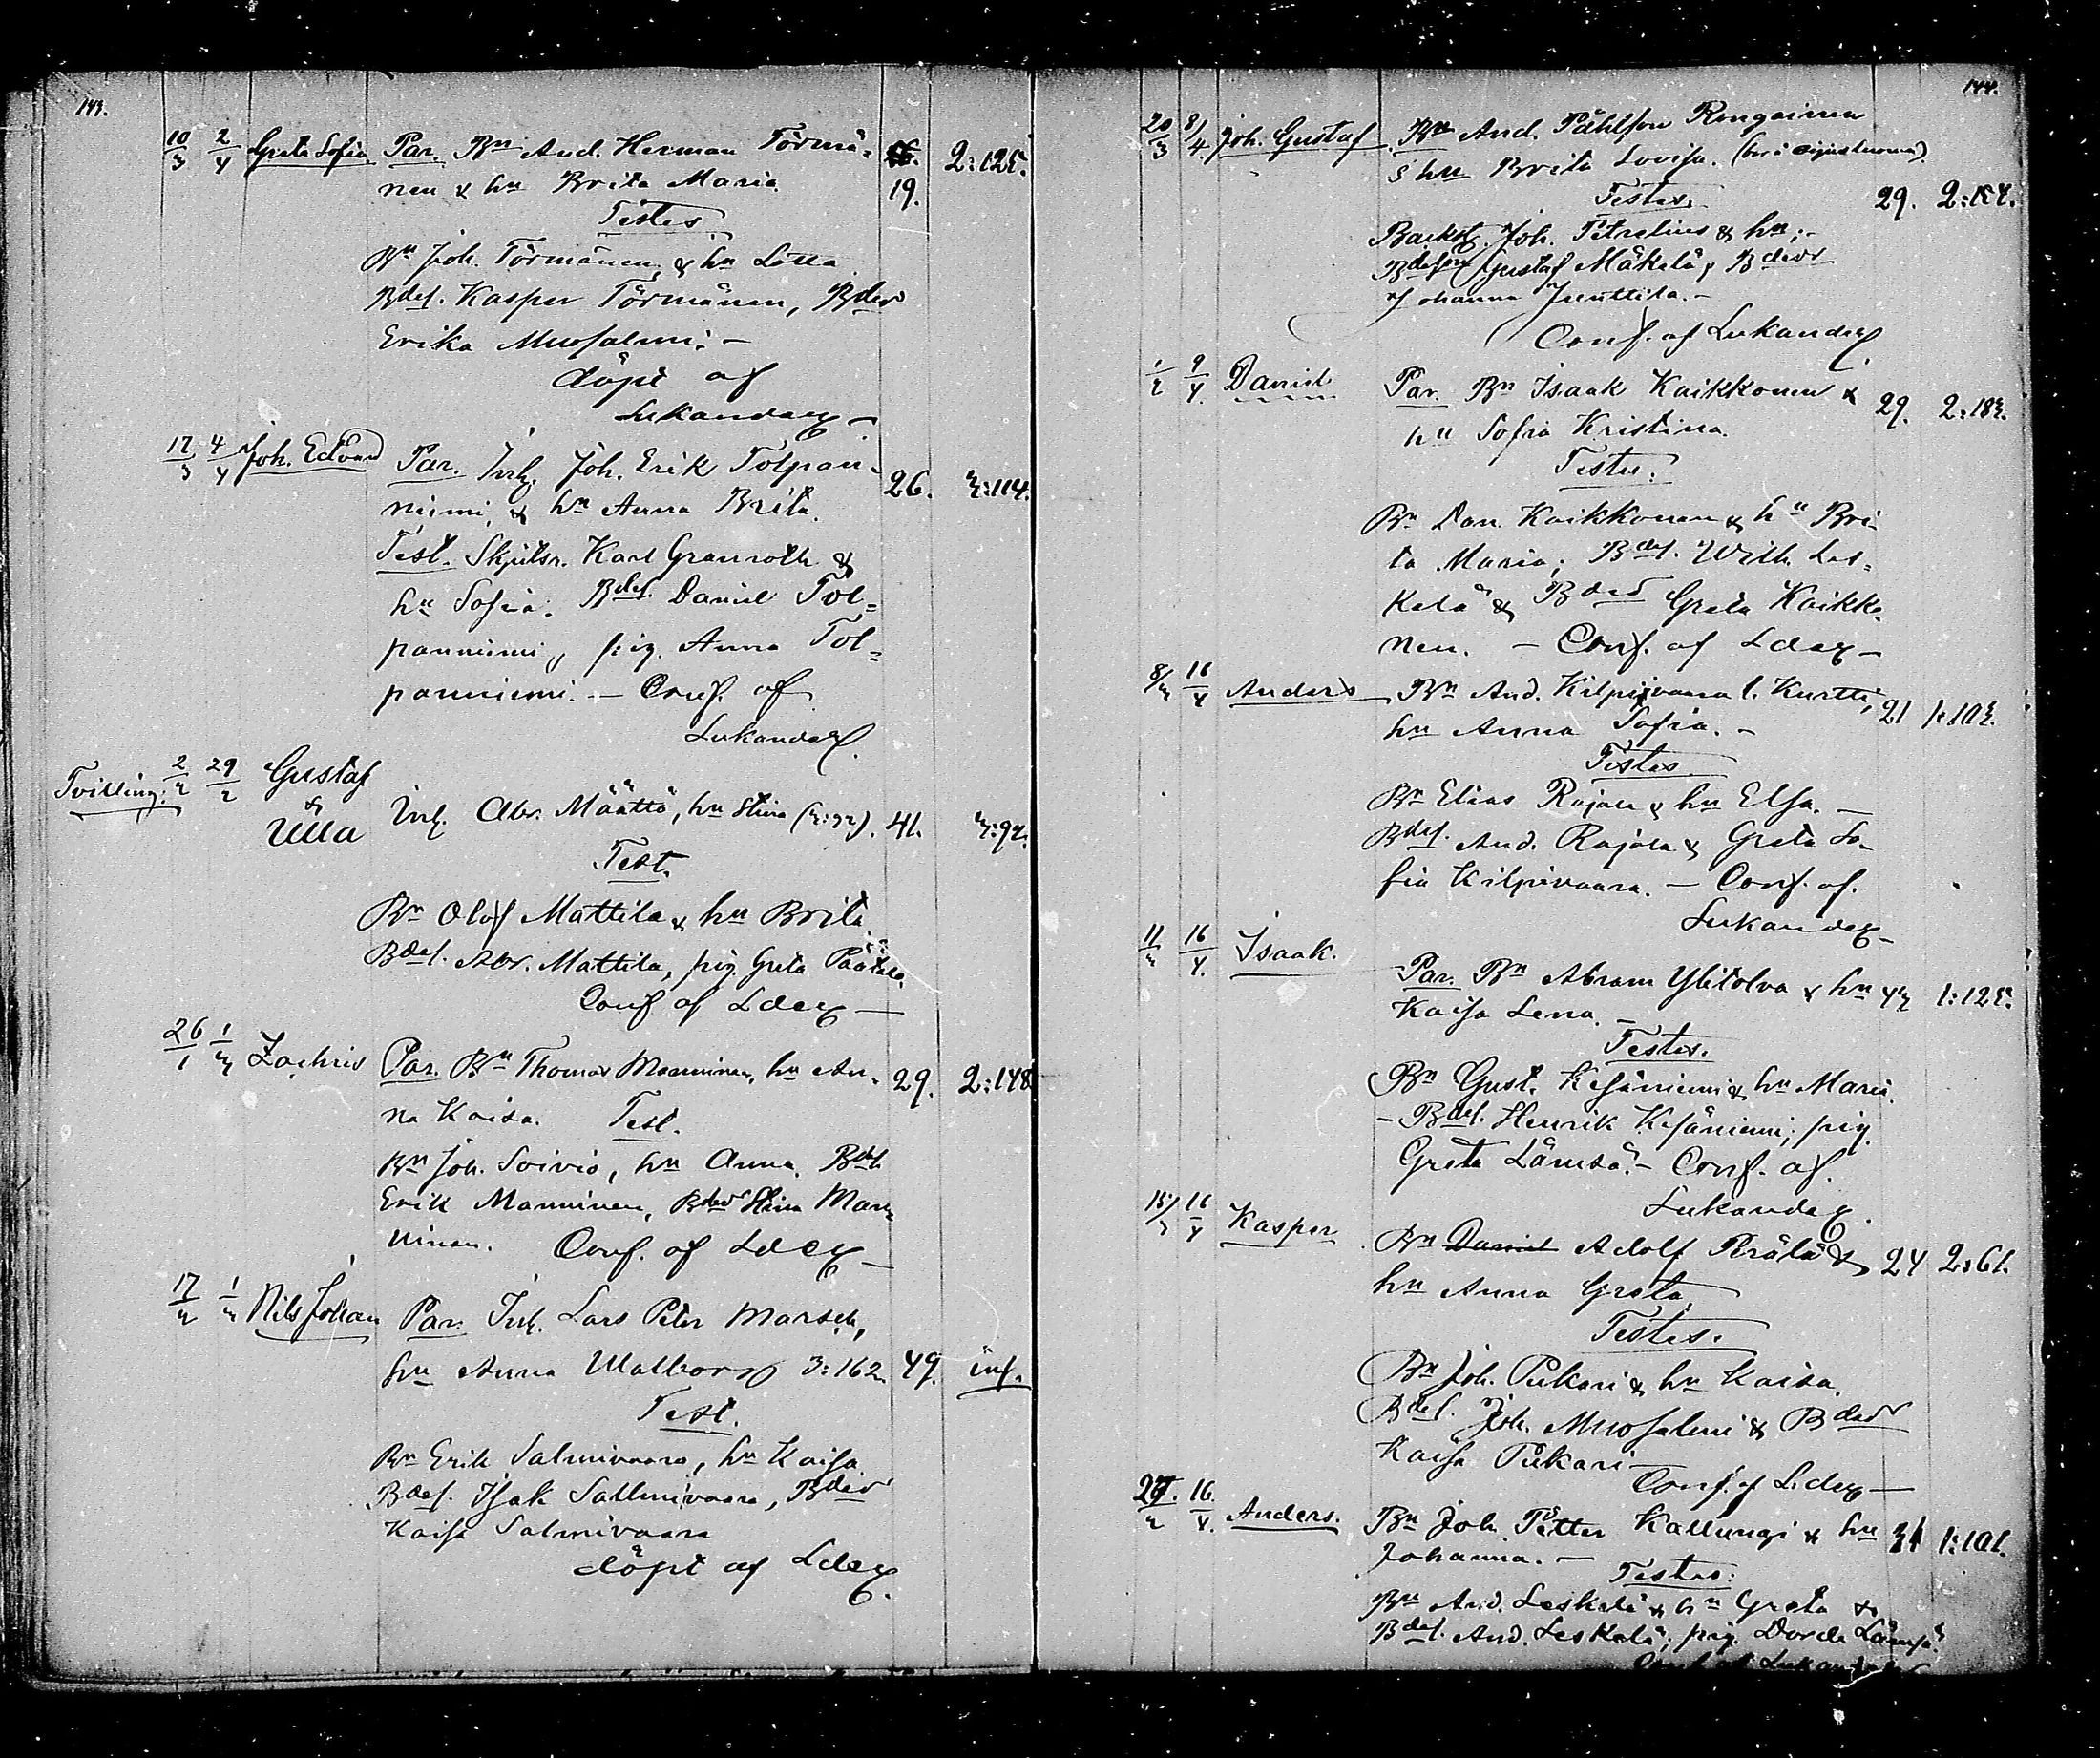 143.
10/3 2/4 Greta Sofia Par. Bn And. Herman Törmä- 19. 2:125.
nen & hn Brita Maria.
Testes
Bn Joh. Törmänen, & hn Lotta
Bdes. Kasper Törmänen, Bdes
Erika Muosalmi. —
döpt af
Lukander —
17/3 4/4 Joh. Edvard Par. Inh. Joh. Erik Tolpan- 26. 3:114.
niemi, & hn Anna Brita.
Test. Skjutsr. Karl Granroth &
hn Sofia. Bdes. Daniel Tol=
panniemi, pig. Anna Tol=
panniemi. — Conf. af
Lukander.
Tvilling: 2/2 29/2 Gustaf
& Ulla Inh. Abr. Määttä, hn Stina (3:92). 41. 3:92.
Test.
Bn Olof Mattila & hn Brita
Bdes. Abr. Mattila, pig. Greta
Conf af Lder —
26/1 1/3 Zachris Par. Bn Thomas Manninen, hn An- 29. 2:148
na Kaisa. Test.
Bn Joh. Soivio, hn Anna. Bdes
Erik Manninen, Bdes Stina Man-
ninen. Conf. af Lder —
17/2 1/3 Nils Johan Par. Inh. Lars Peter Marsch,
hn Anna Walborg 3:162 49. inh.
Test.
Bn Erik Salmivaara, hn Kaisa
Bdes. Isak Salmivaara, Bdes
Kaisa Salmivaara
döpt af Lder.
144.
20/3 8/4. Joh. Gustaf Bn And. Påhlsson Rongainen
& hn Brita Lovisa.
Testes. 29. 2:154.
Backst. Joh. Petrelius & hn; -
Bdeson Gustaf Mäkelä, Bdes
Johanna Junttila. —
Conf. af Lukander
1/2 9/4. Daniel Par. Bn Isaak Kaikkonen & 29. 2:183.
hn Sofia Kristina.
Testes.
Bn Dan. Kaikkonen & hn Bri-
ta Maria; Bdes. Wilh. Les-
kelä & Bdes Greta Kaikko-
nen. — Conf. af Lder —
8/3 16/4 Anders Bn And. Kilpivaara l. Kurtti, 21 1:103.
hn Anna Sofia. —
Testes
Bn Elias Rajala & hn Elsa. —
Bdes. And. Rajala & Greta So-
fia Kilpivaara. — Conf. af.
Lukander —
11/3 16/4. Isaak. Par. Bn Abram Ylitolva & hn 43 1:125.
Kaisa Lena. —
Testes.
Bn Gust. Kesäniemi & hn Maria.
— Bdes. Henrik Kesäniemi; pig.
Greta Lämsä. — Conf. af.
Lukander.
15/3 16/4 Kasper Bn Daniel Adolf Perälä & 24 2:61.
hn Anna Greta
Testes.
Bn Joh. Pukari & hn Kaisa.
Bdes. Joh. Muosalmi & Bdes
Kaisa Pukari —
Conf. af Lder —
16/4. Anders. Bn Joh. Petter Kallungi & hn 31 1:101.
Johanna. —
Testes:
Bn And. Leskelä & hn Greta &
Bdes. And. Leskelä; pig. Dorde Lämsä
Conf af Lukander